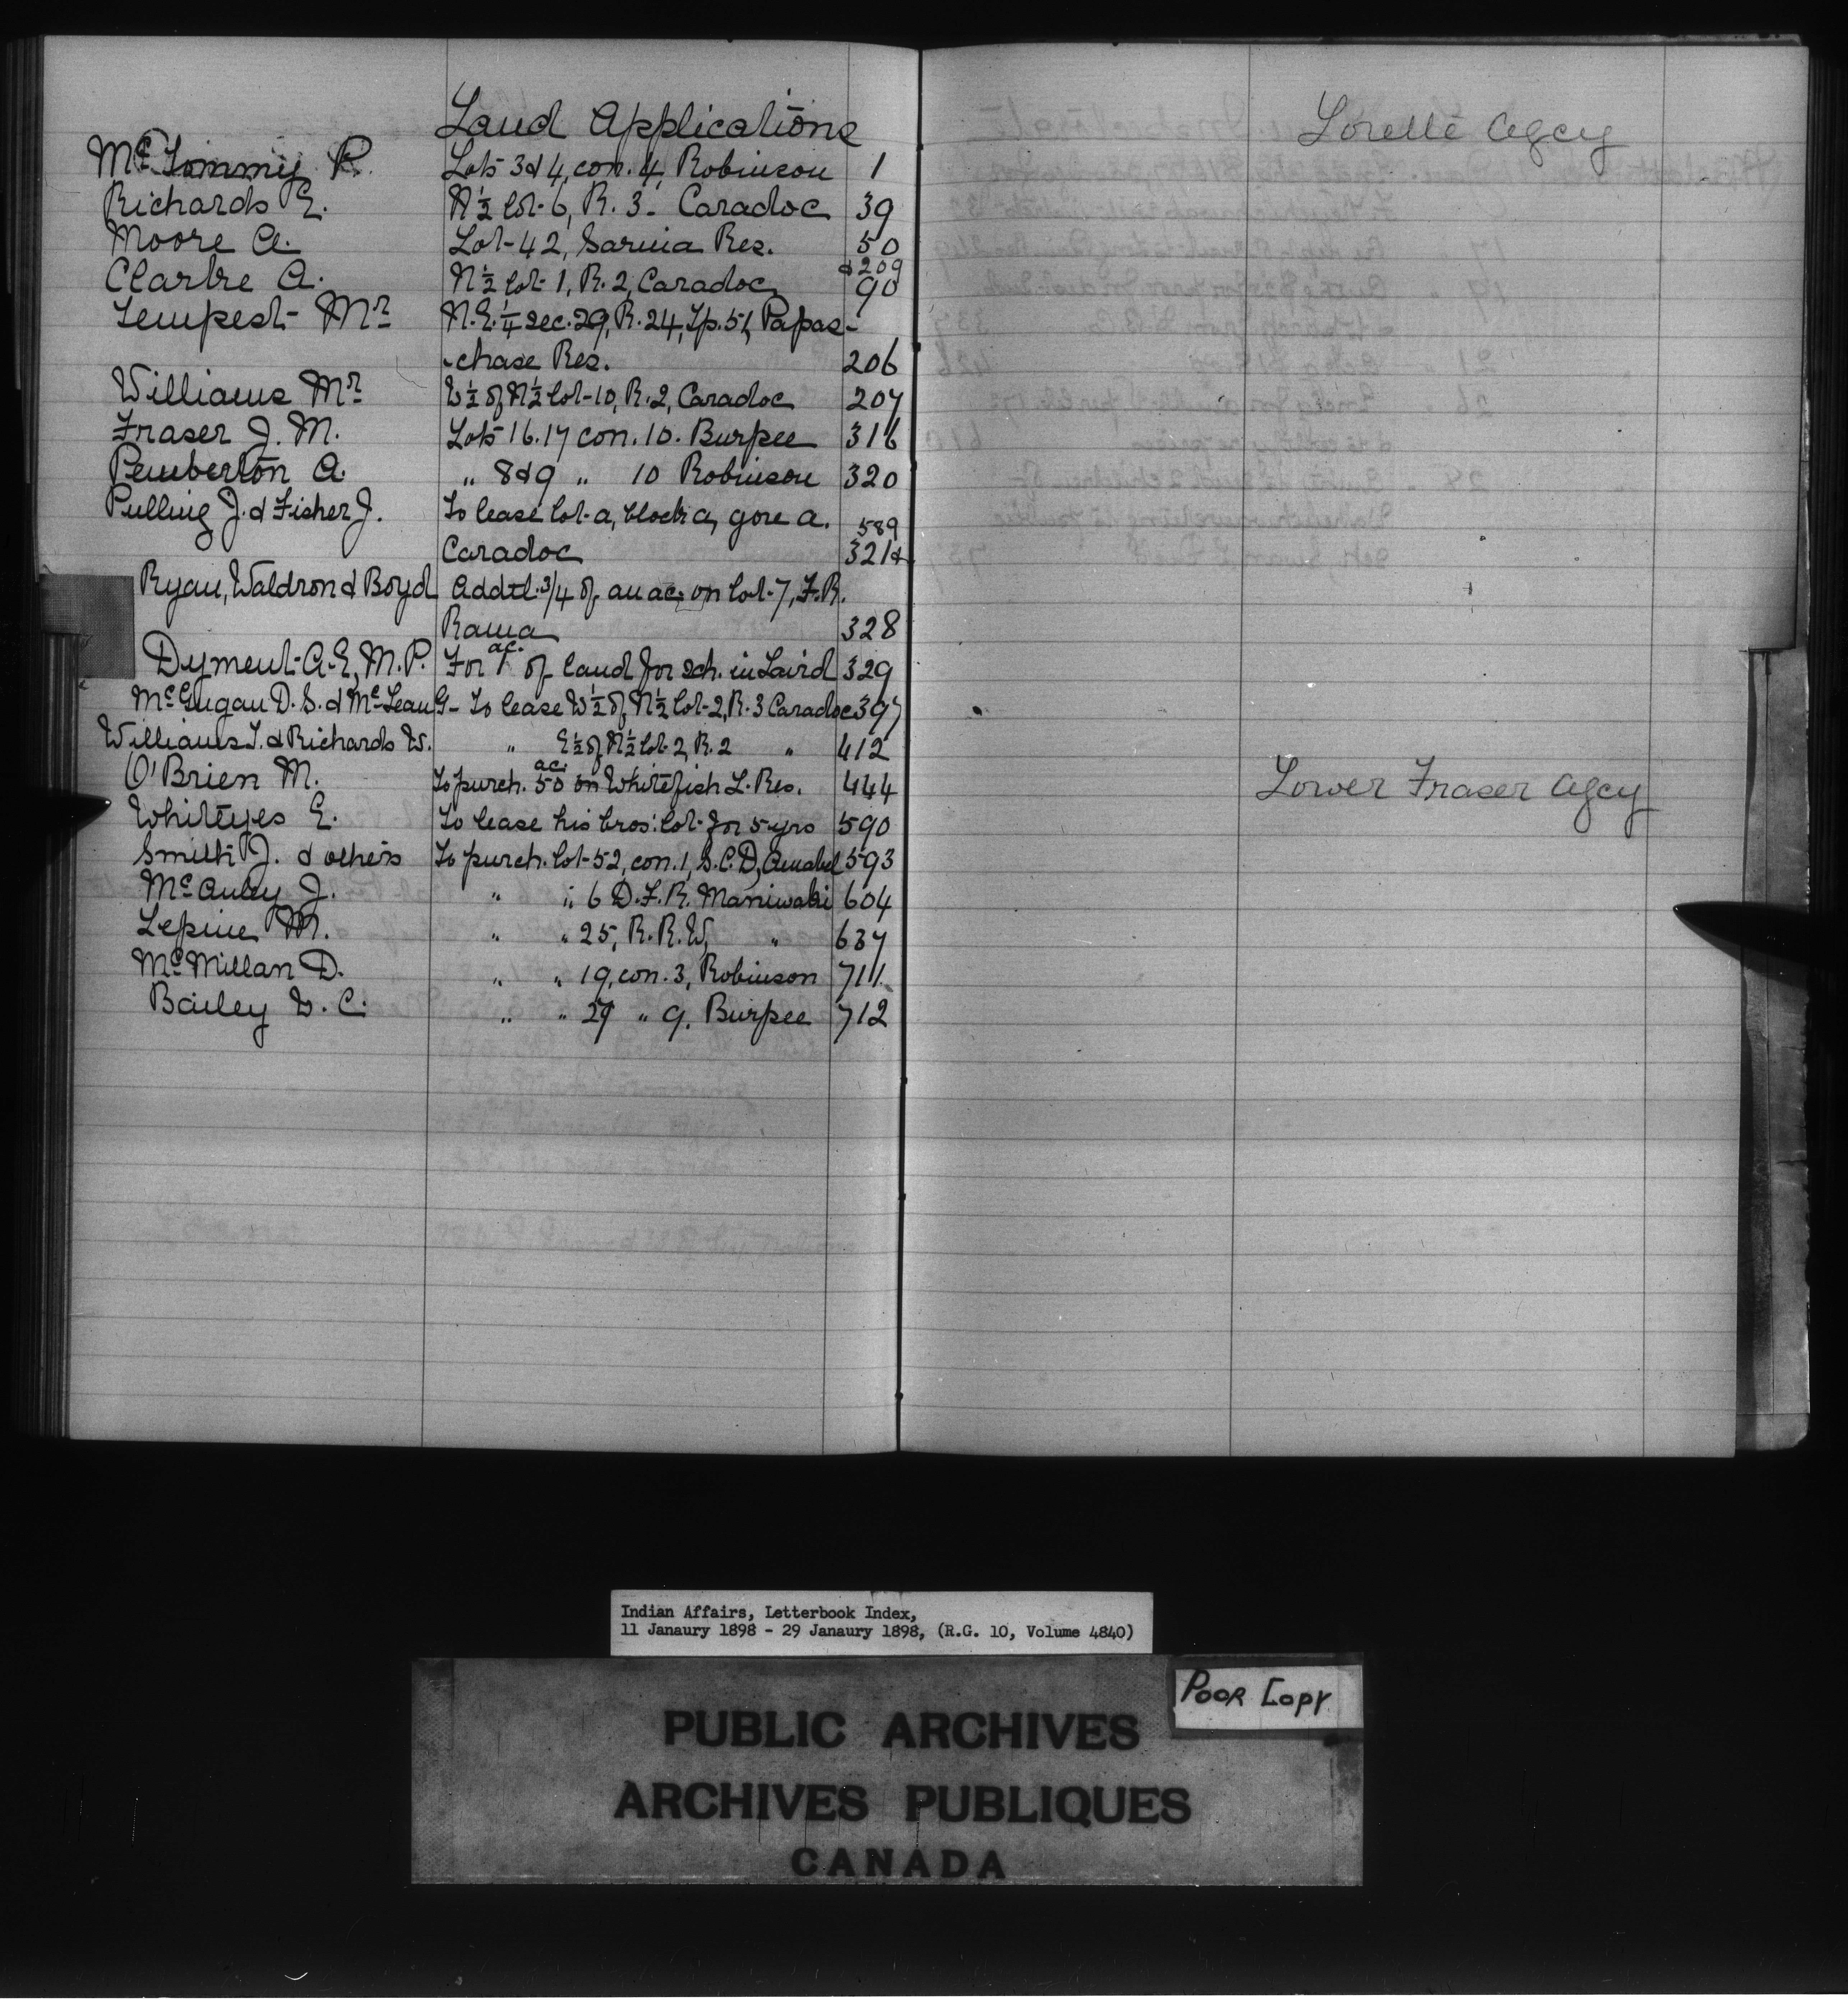 Land Applications
McTommy R. Lots 3 & 4, con. 4, Robinson 1
Richards E. N½ lot 6, R. 3 - Caradoc 39
Moore A. Lot 42, Sarnia Res. 50
& 209
Clarke A. N½ lot 1, R. 2, Caradoc 90
Tempest Mr N.E. ¼ sec. 29, R. 24, Tp. 51, Papas-
-chase Res. 206
Williams Mr W½ of N½ lot 10, R. 2, Caradoc 207
Fraser J. M. Lots 16. 17 con. 10. Burpee 316
Pemberton A. " 8 & 9 " 10 Robinson 320
Pulling J. & Fisher J. To lease lot a, block a, gore a. 589
Caradoc 321 &
Ryan, Waldron & Boyd Addtl. 3/4 of an ac. on lot 7, F. R.
Rama 328
Dyment A. E, M. P. For 1 ac. of land for sch. in Laird 329
McGugan D. S. & McLean G - To lease W½ of N½ lot 2, R. 3 Caradoc 397
Williams J. & Richards W. " E½ of N½ lot 2, R. 2 " 412
O'Brien M. To purch. 50 ac. on Whitefish L. Res. 444
Whiteyes E. To lease his bros: lot for 5 yrs 590
Smith J. & others To purch. lot 52, con. 1, S. C. D, Amabel 593
McAuley J. " " 6 D. F. R. Maniwaki 604
Lepine M. " " 25, R. R. W, " 637
McMillan D. " " 19, con. 3, Robinson 711
Bailey W. C. " " 27 " 9. Burpee 712
Lorette Agcy
Lower Fraser Agcy
Indian Affairs, Letterbook Index,
11 Janaury 1898 - 29 Janaury 1898, (R.G. 10, Volume 4840)
Poor Copy
PUBLIC ARCHIVES
ARCHIVES PUBLIQUES
CANADA